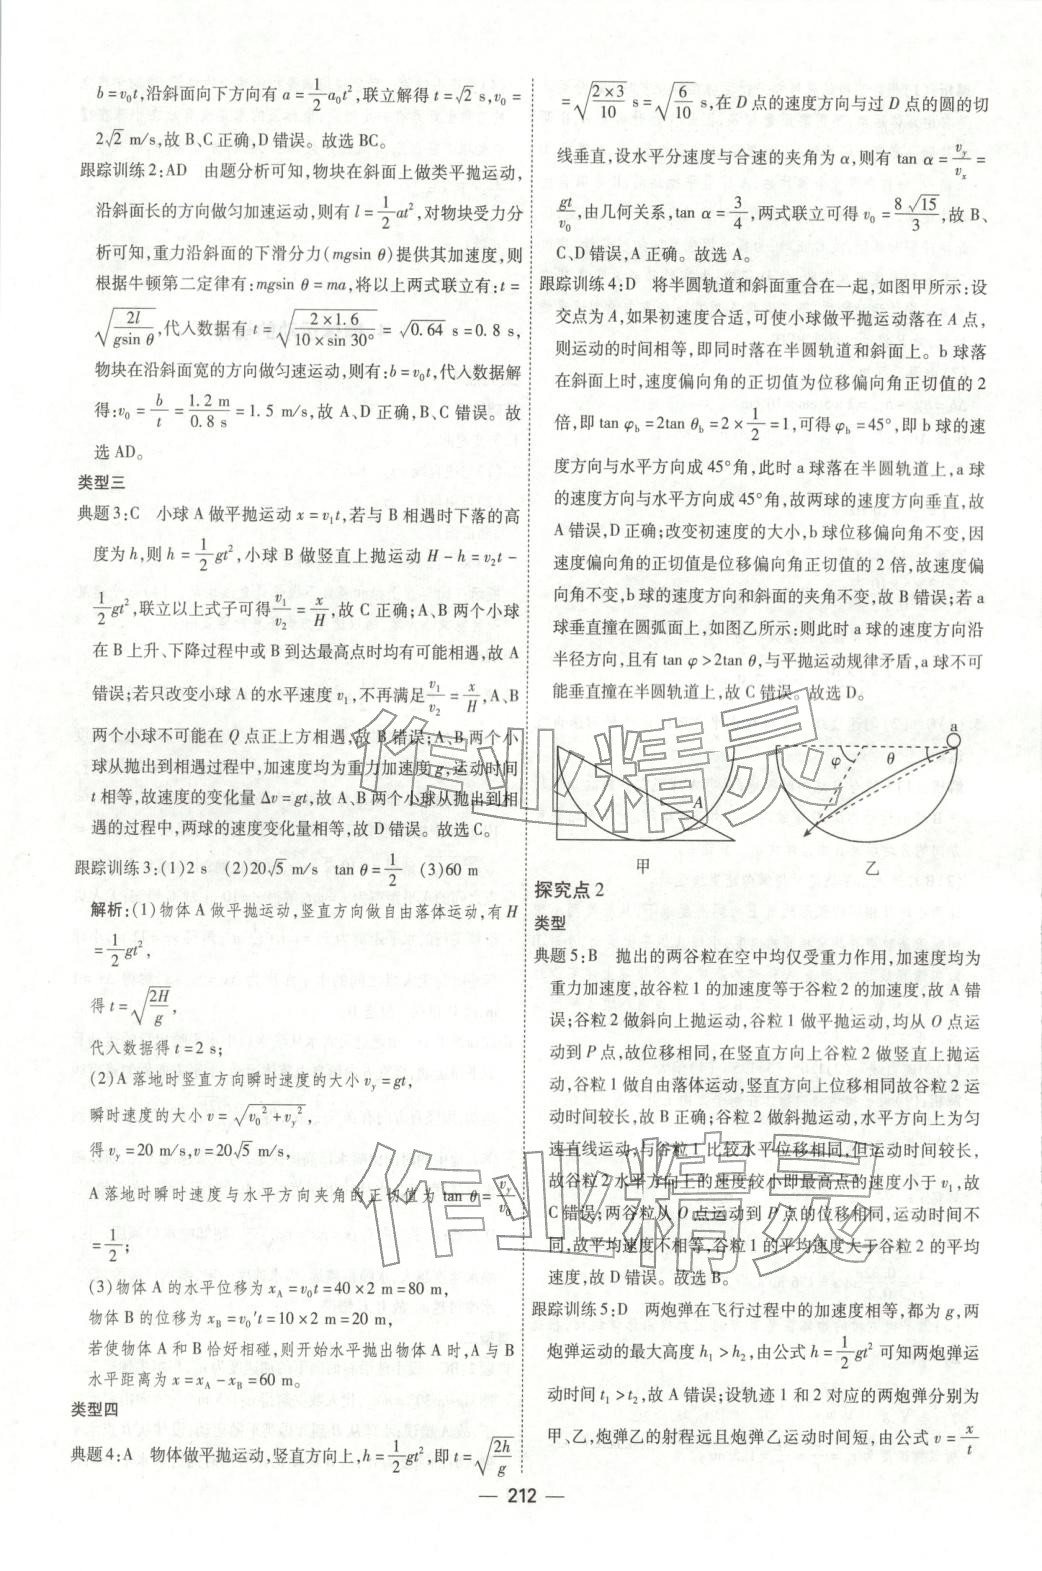 b=v₀t,沿斜面向下方向有 a=1/2 a₀t²,联立解得 t=√2 s,v₀=
2√2 m/s,故 B、C 正确,D 错误。故选 BC。
跟踪训练2:AD 由题分析可知,物块在斜面上做类平抛运动,
沿斜面长的方向做匀加速运动,则有 l=1/2 at²,对物块受力分
析可知,重力沿斜面的下滑分力(mgsin θ)提供其加速度,则
根据牛顿第二定律有:mgsin θ=ma,将以上两式联立有:t=
√(2l/gsin θ),代入数据有 t=√(2×1.6/10×sin 30°)=√0.64 s=0.8 s,
物块在沿斜面宽的方向做匀速运动,则有:b=v₀t,代入数据解
得:v₀=b/t=1.2 m/0.8 s=1.5 m/s,故 A、D 正确,B、C 错误。故
选 AD。
类型三
典题3:C 小球 A 做平抛运动 x=v₁t,若与 B 相遇时下落的高
度为 h,则 h=1/2 gt²,小球 B 做竖直上抛运动 H-h=v₂t-
1/2 gt²,联立以上式子可得 v₁/v₂=x/H,故 C 正确;A、B 两个小球
在 B 上升、下降过程中或 B 到达最高点时均有可能相遇,故 A
错误;若只改变小球 A 的水平速度 v₁,不再满足 v₁/v₂=x/H,A、B
两个小球不可能在 Q 点正上方相遇,故 B 错误;A、B 两个小
球从抛出到相遇过程中,加速度均为重力加速度 g,运动时间
t 相等,故速度的变化量 Δv=gt,故 A、B 两个小球从抛出到相
遇的过程中,两球的速度变化量相等,故 D 错误。故选 C。
跟踪训练3:(1)2 s (2)20√5 m/s tan θ=1/2 (3)60 m
解析:(1)物体 A 做平抛运动,竖直方向做自由落体运动,有 H
=1/2 gt²,
得 t=√(2H/g),
代入数据得 t=2 s;
(2)A 落地时竖直方向瞬时速度的大小 v_y=gt,
瞬时速度的大小 v=√(v₀²+v_y²),
得 v_y=20 m/s,v=20√5 m/s,
A 落地时瞬时速度与水平方向夹角的正切值为 tan θ=v_y/v₀
=1/2;
(3)物体 A 的水平位移为 x_A=v₀t=40×2 m=80 m,
物体 B 的位移为 x_B=v₀′t=10×2 m=20 m,
若使物体 A 和 B 恰好相碰,则开始平抛出物体 A 时,A 与 B
水平距离为 x=x_A-x_B=60 m。
类型四
典题4:A 物体做平抛运动,竖直方向上,h=1/2 gt²,即 t=√(2h/g)
=√(2×3/10) s=√(6/10) s,在 D 点的速度方向与过 D 点的圆的切
线垂直,设水平分速度与合速的夹角为 α,则有 tan α=v_y/v_x=
gt/v₀,由几何关系,tan α=3/4,两式联立可得 v₀=8√15/3,故 B、
C、D 错误,A 正确。故选 A。
跟踪训练4:D 将半圆轨道和斜面重合在一起,如图甲所示:设
交点为 A,如果初速度合适,可使小球做平抛运动落在 A 点,
则运动的时间相等,即同时落在半圆轨道和斜面上。b 球落
在斜面上时,速度偏向角的正切值为位移偏向角正切值的 2
倍,即 tan φ_b=2tan θ_b=2×1/2=1,可得 φ_b=45°,即 b 球的速
度方向与水平方向成 45°角,此时 a 球落在半圆轨道上,a 球
的速度方向与水平方向成 45°角,故两球的速度方向垂直,故
A 错误,D 正确;改变初速度的大小,b 球位移偏向角不变,因
速度偏向角的正切值是位移偏向角正切值的 2 倍,故速度偏
向角不变,b 球的速度方向和斜面的夹角不变,故 B 错误;若 a
球垂直撞在圆弧面上,如图乙所示:则此时 a 球的速度方向沿
半径方向,且有 tan φ>2tan θ,与平抛运动规律矛盾,a 球不可
能垂直撞在半圆轨道上,故 C 错误。故选 D。
A
甲
a
φ
θ
乙
探究点 2
类型
典题5:B 抛出的两谷粒在空中均仅受重力作用,加速度均为
重力加速度,故谷粒 1 的加速度等于谷粒 2 的加速度,故 A 错
误;谷粒 2 做斜向上抛运动,谷粒 1 做平抛运动,均从 O 点运
动到 P 点,故位移相同,在竖直方向上谷粒 2 做竖直上抛运
动,谷粒 1 做自由落体运动,竖直方向上位移相同故谷粒 2 运
动时间较长,故 B 正确;谷粒 2 做斜抛运动,水平方向上为匀
速直线运动,与谷粒 1 比较水平位移相同,但运动时间较长,
故谷粒 2 水平方向上的速度较小即最高点的速度小于 v₁,故
C 错误;两谷粒从 O 点运动到 P 点的位移相同,运动时间不
同,故平均速度不相等,谷粒 1 的平均速度大于谷粒 2 的平均
速度,故 D 错误。故选 B。
跟踪训练5:D 两炮弹在飞行过程中的加速度相等,都为 g,两
炮弹运动的最大高度 h₁>h₂,由公式 h=1/2 gt² 可知两炮弹运
动时间 t₁>t₂,故 A 错误;设轨迹 1 和 2 对应的两炮弹分别为
甲、乙,炮弹乙的射程远且炮弹乙运动时间短,由公式 v=x/t
— 212 —
作业精灵
作业精灵